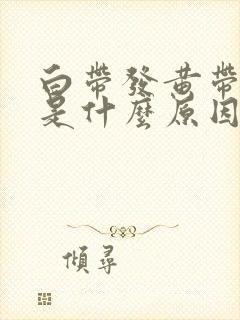 白帶發黄帶
是什麼原因
傾尋